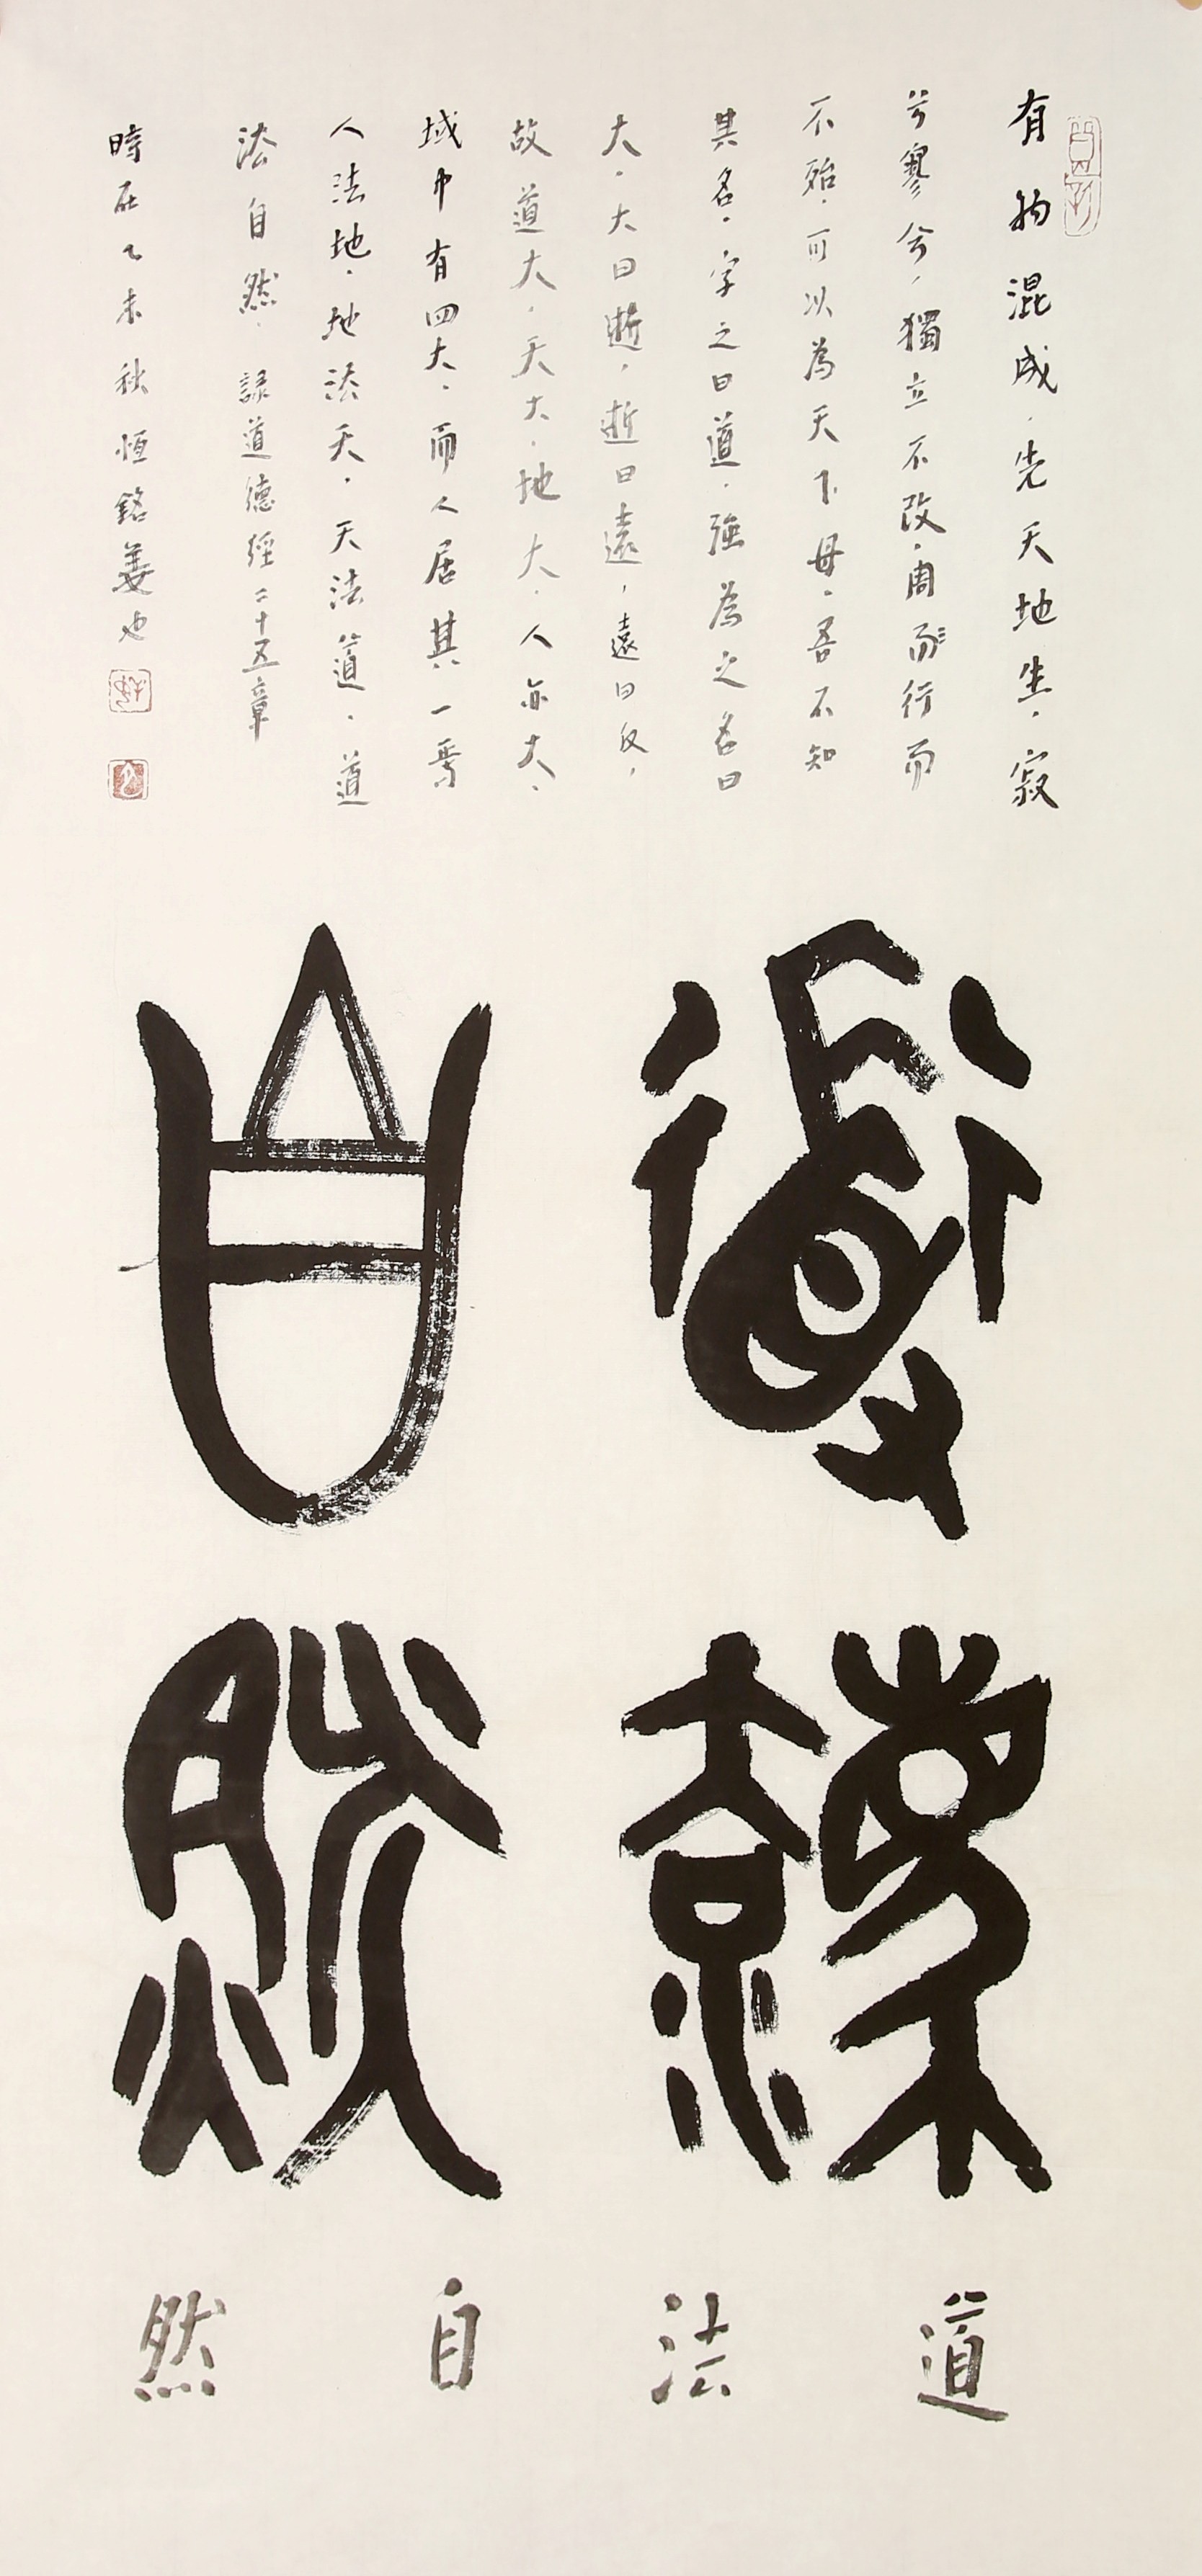 有物混成，先天地生，寂
兮寥兮，獨立不改，周而行而
不殆，可以為天下母，吾不知
其名，字之曰道，強為之名曰
大，大曰逝，逝曰遠，遠曰反，
故道大，天大，地大，人亦大，
域中有四大，而人居其一焉
人法地，地法天，天法道，道
法自然，錄道德經二十五章
時在乙未秋恒銘姜也
道法
自然
道法自然